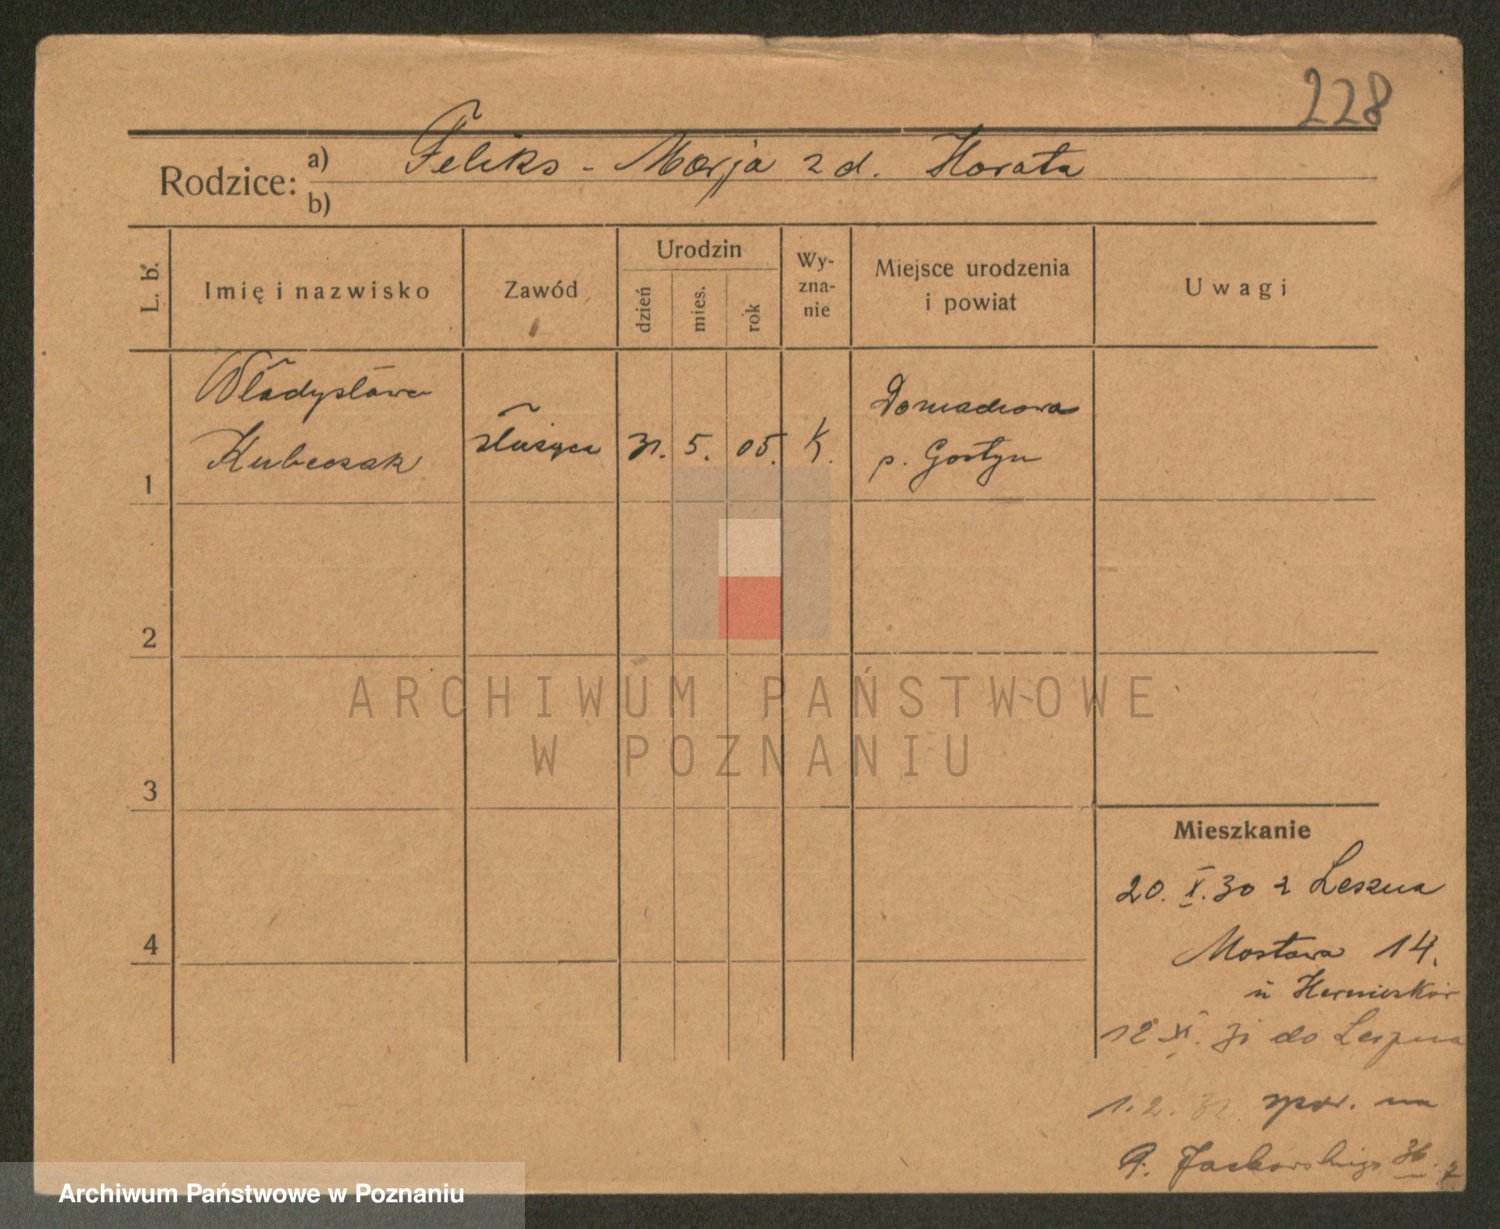 228
Rodzice: a) Feliks - Marja z d. Horała
b)
L. b. Imię i nazwisko Zawód Urodzin dzień mies. rok Wyznanie Miejsce urodzenia i powiat Uwagi
Władysława
Kubeczak
służąca 31. 5. 05. K.
Domachowo
p. Gostyń
1
2
3
4
ARCHIWUM PAŃSTWOWE
W POZNANIU
Mieszkanie
20. X. 30 z Leszna
Mostowa 14.
u
12 XI. 31 do Leszna
1. 2. 32 na
Jackowskiego 36
Archiwum Państwowe w Poznaniu